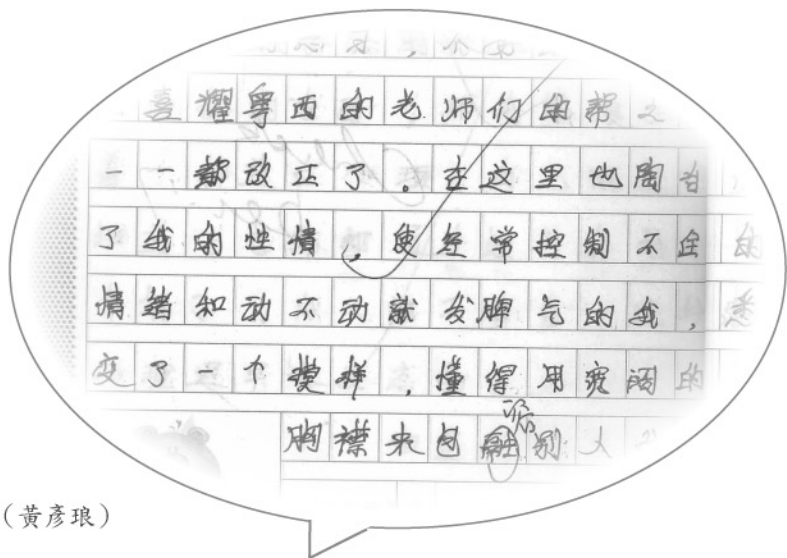 喜耀粤西的老师们的帮
一一都改正了。在这里也陶冶
了我的性情,使经常控制不住的
情绪和动不动就发脾气的我,
变了一个模样,懂得用宽阔的
胸襟来包融别人
（黃彥琅）